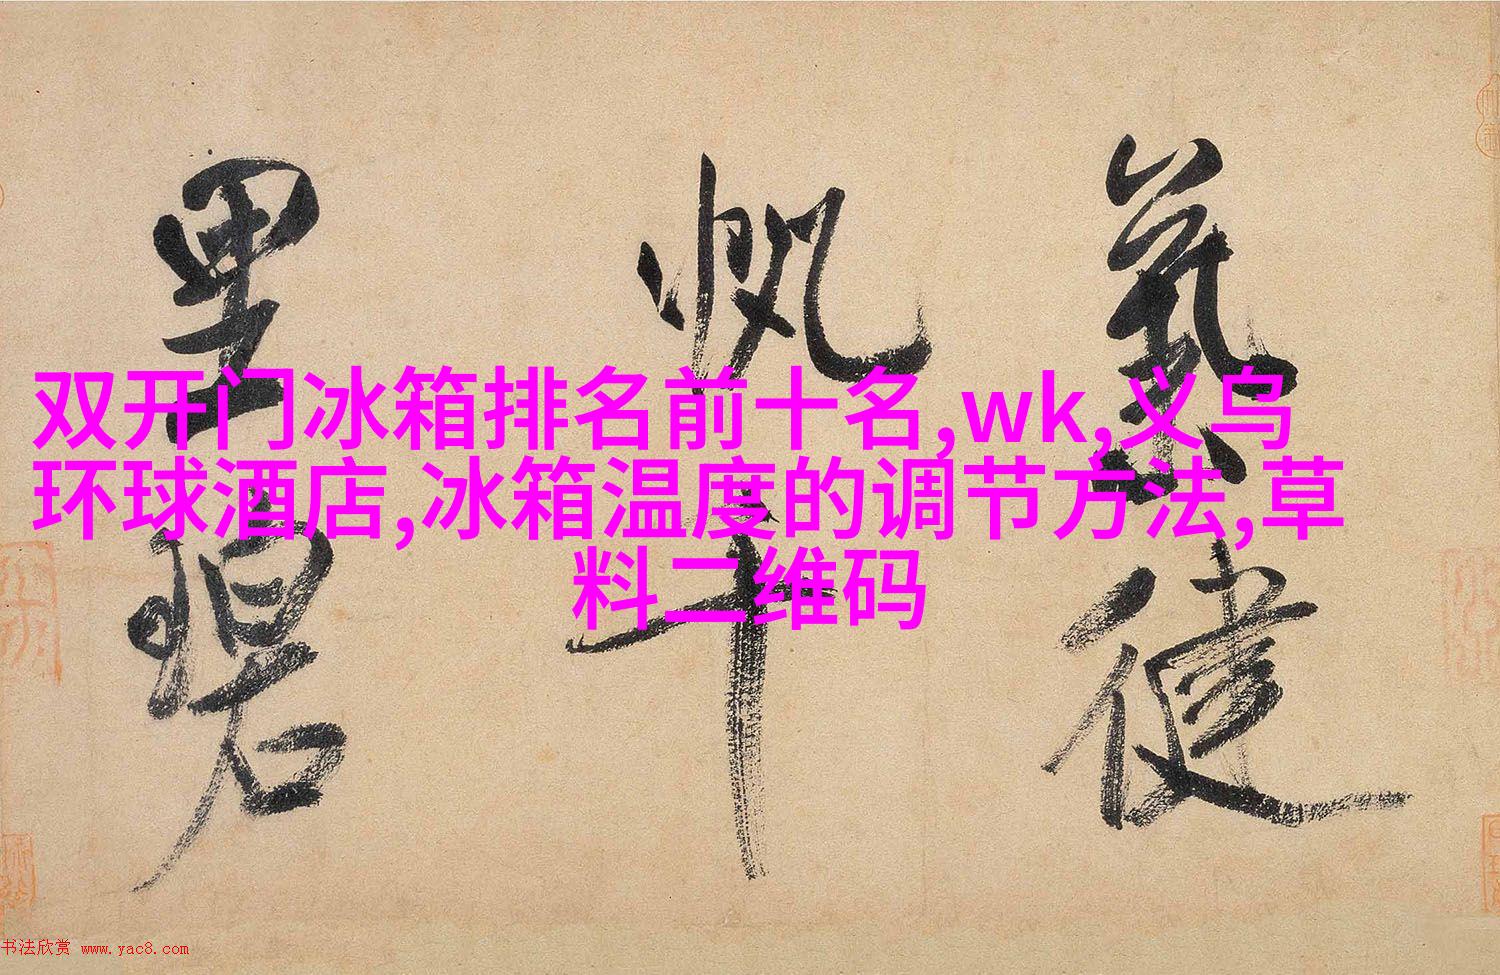 双开门冰箱排名前十名,wk,义乌
环球酒店,冰箱温度的调节方法,草
料二维码
健
帆十
里碧
书法欣赏 www.yac8.com